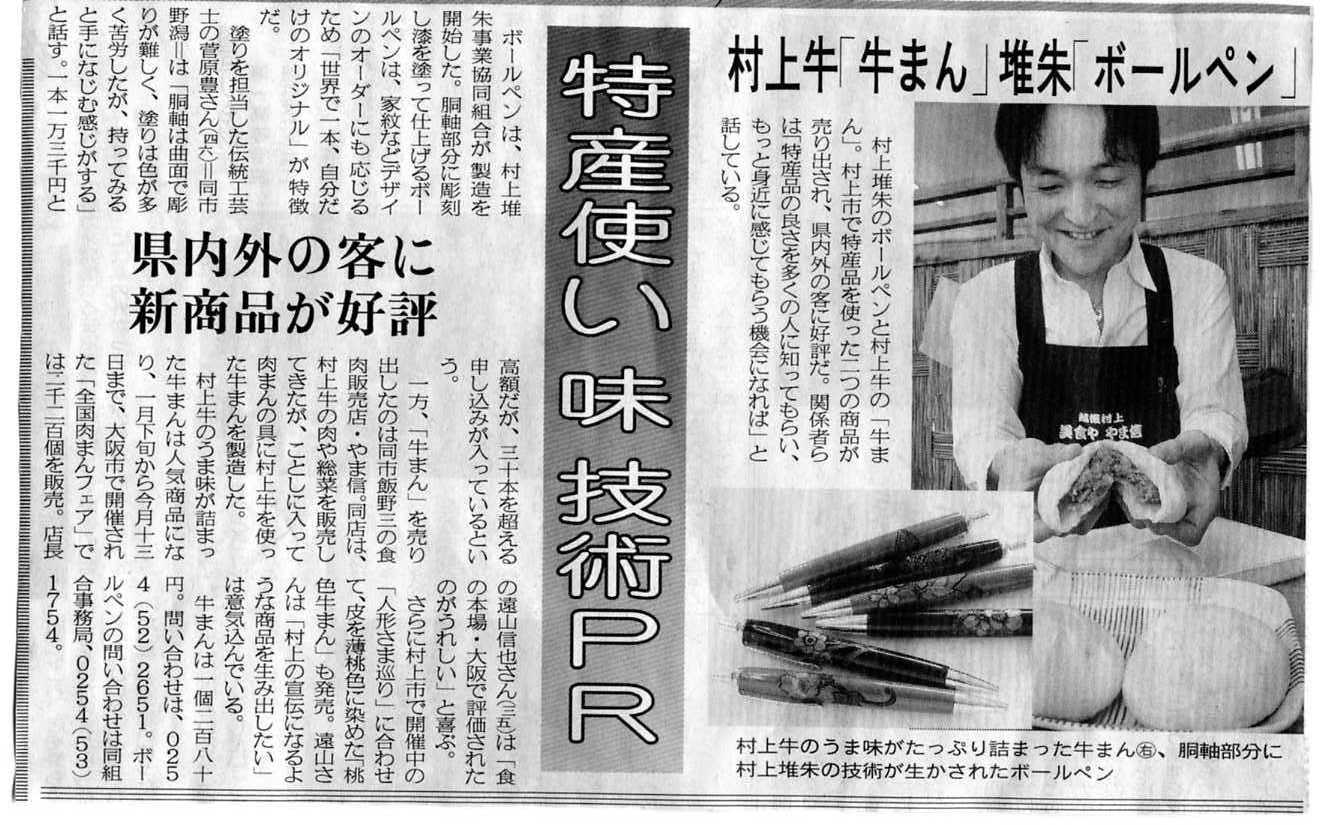 村上牛「牛まん」堆朱「ボールペン」
特産使い味 技術PR
県内外の客に
新商品が好評
村上堆朱のボールペンと村上牛の「牛ま
ん」。村上市で特産品を使った二つの商品が
売り出され、県内外の客に好評だ。関係者ら
は「特産品の良さを多くの人に知ってもらい、
もっと身近に感じてもらう機会になれば」と
話している。
ボールペンは、村上堆
朱事業協同組合が製造を
開始した。胴軸部分に彫刻
し漆を塗って仕上げるボー
ルペンは、家紋などデザイ
ンのオーダーにも応じる
ため「世界で一本、自分だ
けのオリジナル」が特徴
だ。
塗りを担当した伝統工芸
士の菅原豊さん(四六)=同市
野潟=は「胴軸は曲面で彫
りが難しく、塗りは色が多
く苦労したが、持ってみる
と手になじむ感じがする」
と話す。一本一万三千円と
高額だが、三十本を超える
申し込みが入っているとい
う。
一方、「牛まん」を売り
出したのは同市飯野三の食
肉販売店・やま信。同店は、
村上牛の肉や総菜を販売し
てきたが、ことしに入って
肉まんの具に村上牛を使っ
た牛まんを製造した。
村上牛のうま味が詰まっ
た牛まんは人気商品にな
り、一月下旬から今月十三
日まで、大阪市で開催され
た「全国肉まんフェア」で
は二千二百個を販売。店長
の遠山信也さん(三五)は「食
の本場・大阪で評価された
のがうれしい」と喜ぶ。
さらに村上市で開催中の
「人形さま巡り」に合わせ
て、皮を薄桃色に染めた「桃
色牛まん」も発売。遠山さ
んは「村上の宣伝になるよ
うな商品を生み出したい」
は意気込んでいる。
牛まんは一個二百八十
円。問い合わせは、025
4(52)2651。ボー
ルペンの問い合わせは同組
合事務局、0254(53)
1754。
越後村上
美食や やま信
村上牛のうま味がたっぷり詰まった牛まん㊨、胴軸部分に
村上堆朱の技術が生かされたボールペン